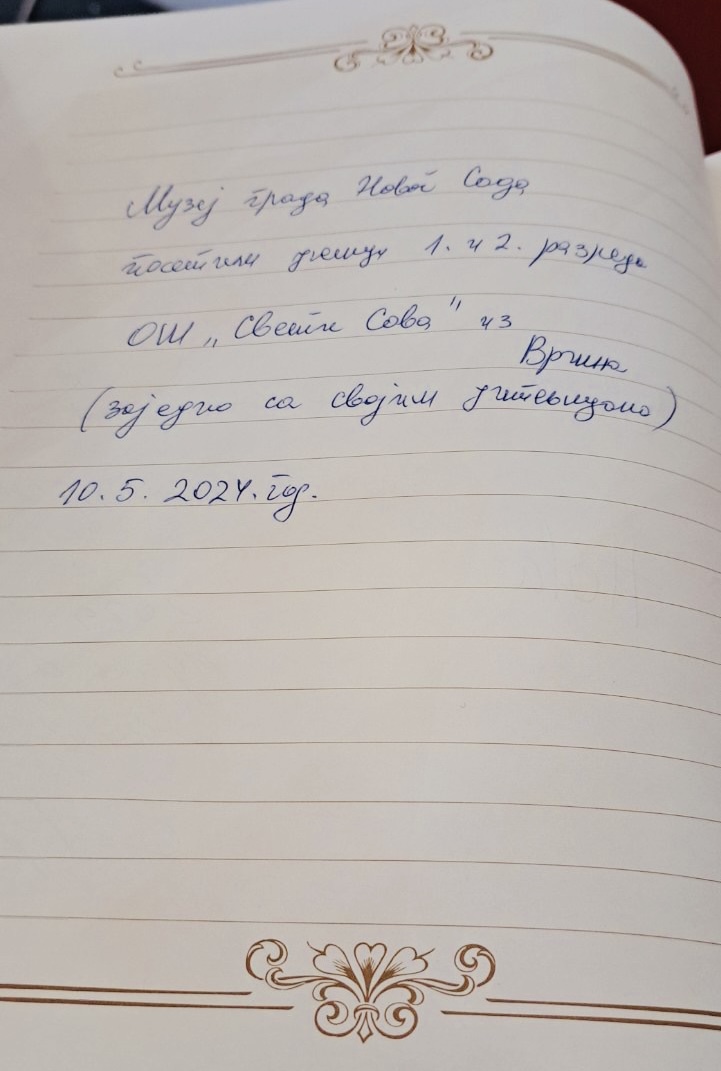 Музеј града Новог Сада
посетили ученици 1. и 2. разреда
ОШ „Свети Сава" из
Вршца
(заједно са својим учитељицама)
10. 5. 2024. год.